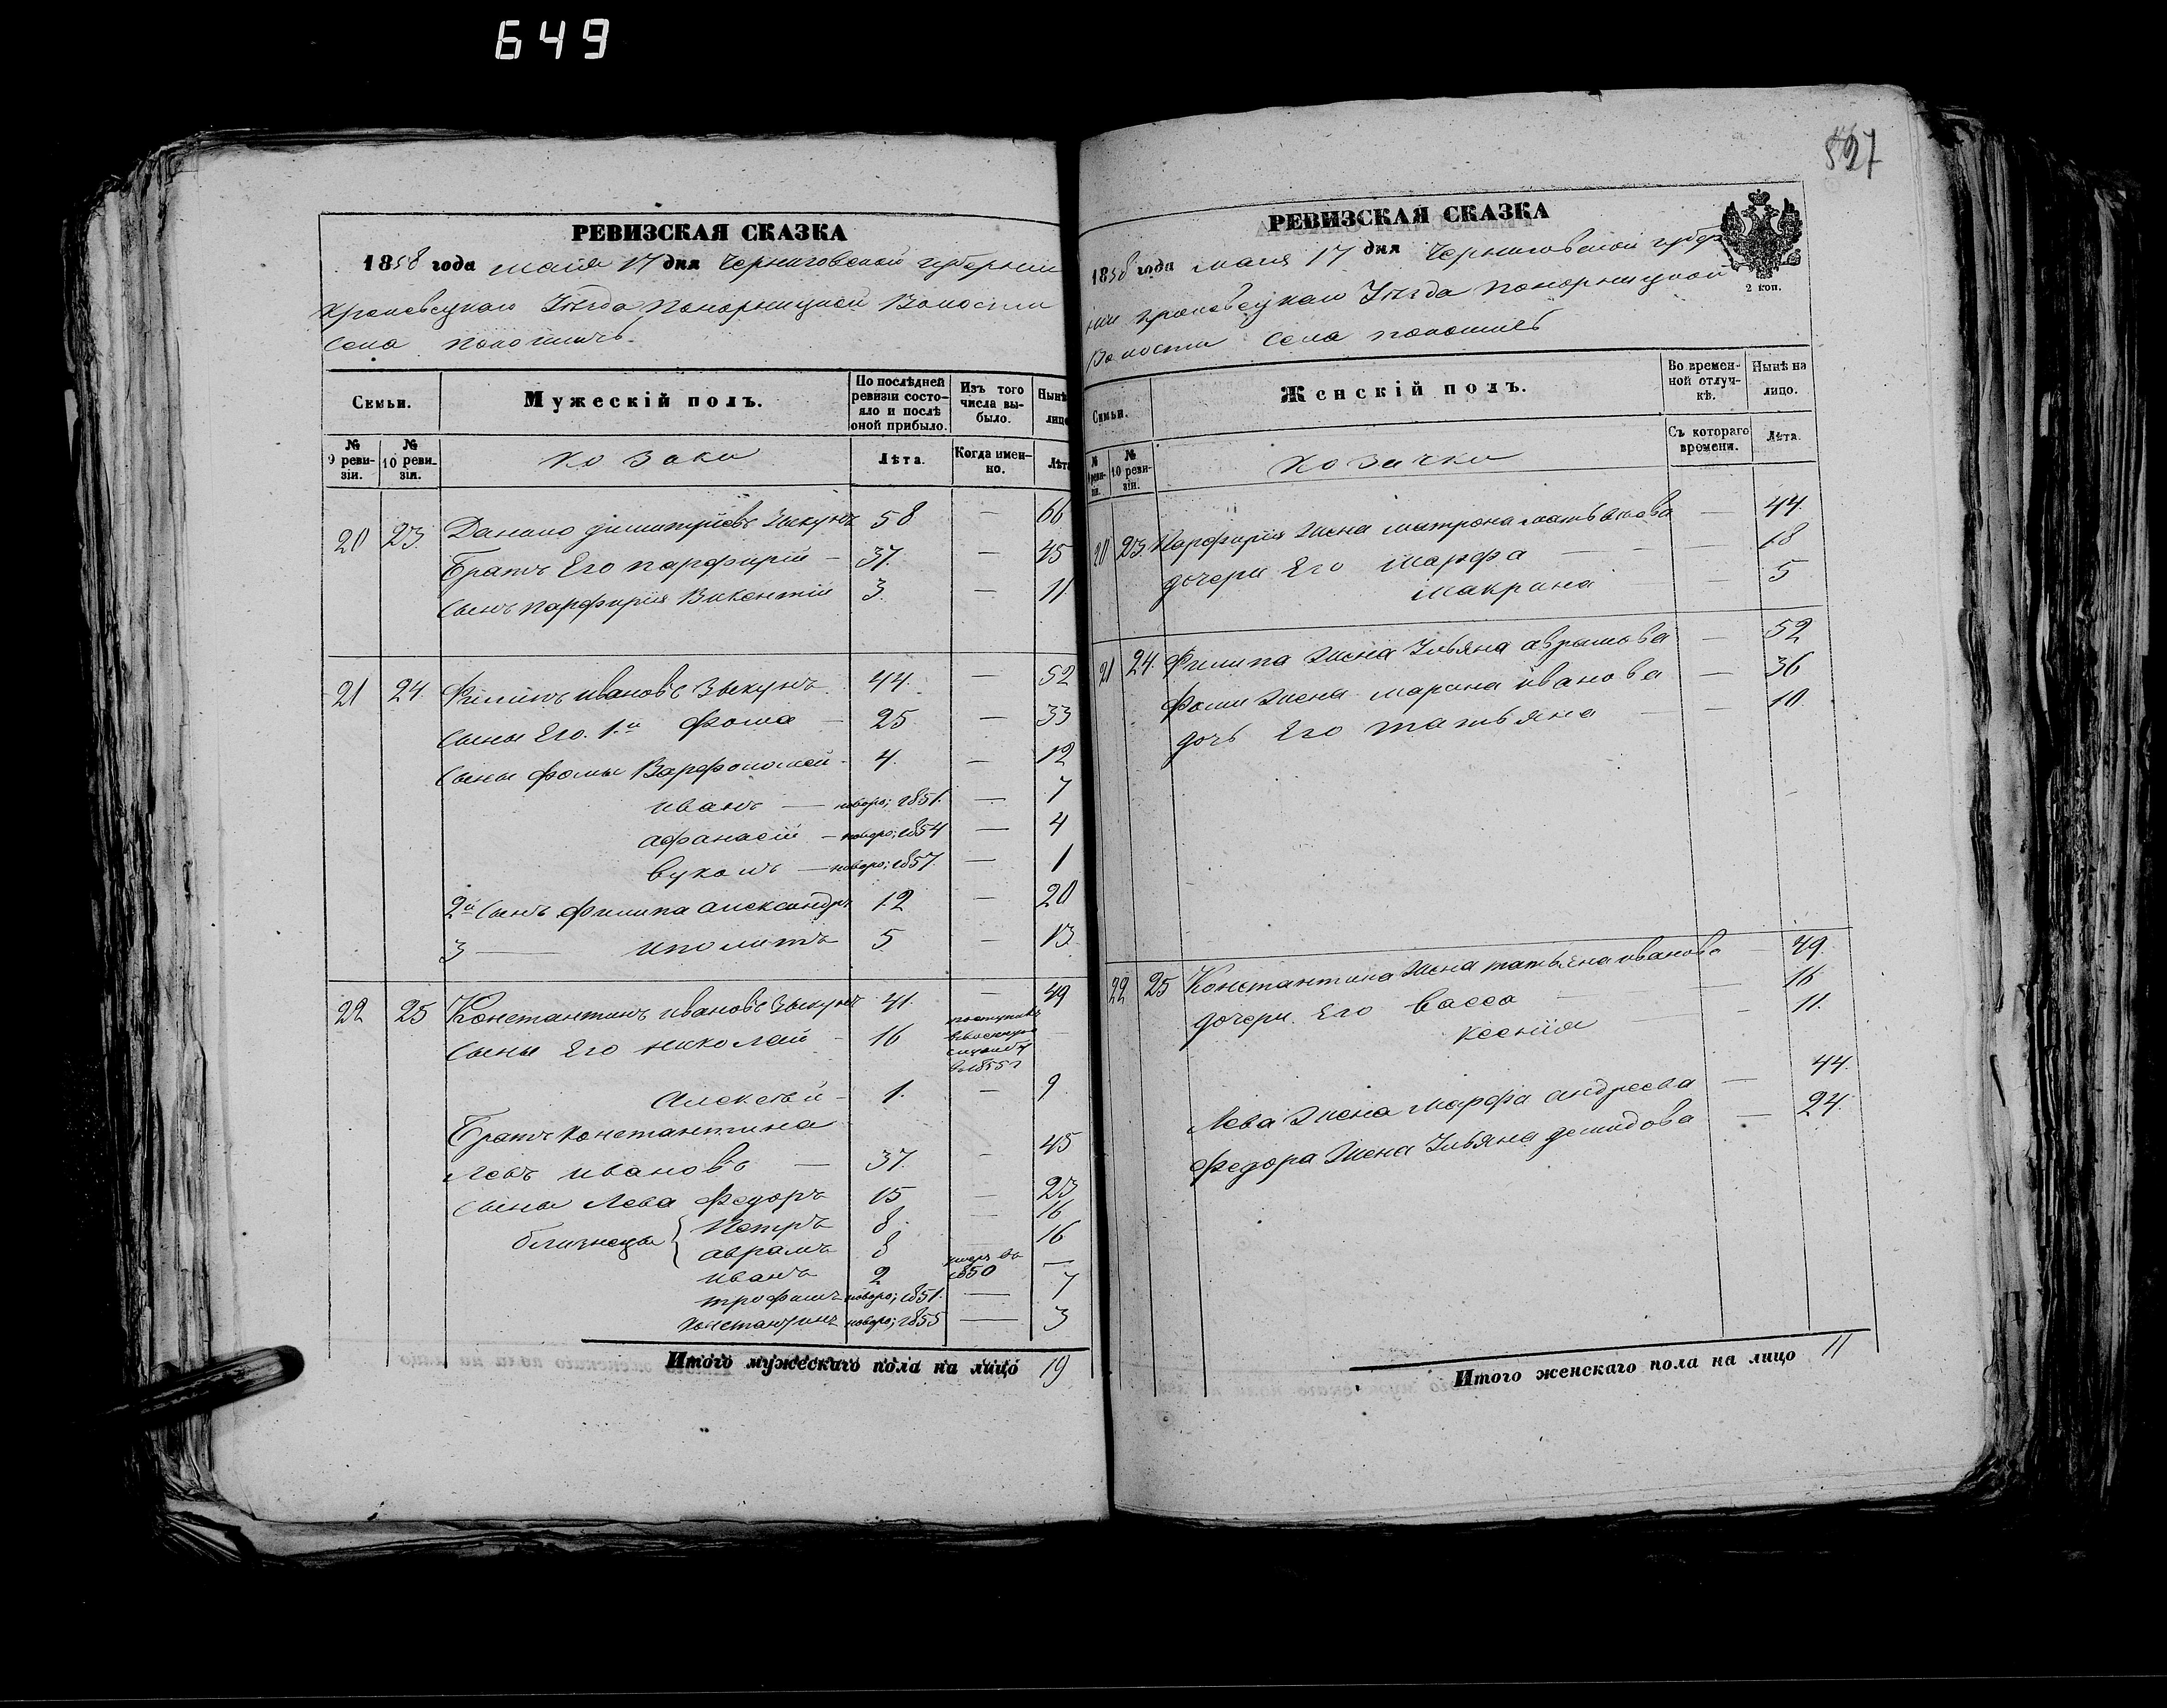 649
527
РЕВИЗСКАЯ СКАЗКА
1858 года мaiя 17 дня Черниговской губернии
Кролевецкаго Уѣзда Понорницкой Волости
Села Покошичь
Семьи.
Мужескій полъ.
По послѣдней ревизіи состояло и послѣ оной прибыло.
Изъ того числа выбыло.
Нынѣ лицо
№ 9 ревизіи.
№ 10 ревизіи.
Козаки
Лѣта.
Когда именно.
Лѣта
20 23. Данило Димитріевъ Зыкунъ 58 — 66
Братъ Его Парфирій — 37. — 45
Сынъ Парфирія Викентій 3. — 11
21 24. Филипъ Ивановъ Зыкунъ 44. — 52
Сыны Его. 1.й Фома — 25 — 33
Сыны Фомы Варфоломей — 4. — 12
Иванъ — новоро; 1851. — 7
Афанасій — новоро; 1854 — 4
Вуколъ — новоро; 1857. — 1
2й Сынъ Филипа Александръ 12 — 20
3 — Иполитъ 5 — 13
22 25 Константинъ Ивановъ Зыкунъ 41. — 49
Сыны Его Николай — 16 поступилъ ввоенную службу в 1855 г —
Алексѣй — 1. — 9
Братъ Константина
Левъ Ивановъ — 37. — 45
Сыны Лева Федоръ 15 — 23
близнецы { Петръ 8 — 16
Аврамъ 8 16
Иванъ 2 умеръ въ 1850 —
Трофимъ новоро; 1851. — 7
Константинъ новоро; 1855 — 3
Итого мужескаго пола на лицо 19
РЕВИЗСКАЯ СКАЗКА
1858 года мaiя 17 дня Черниговской губер
нии Кролевецкаго Уѣзда Понорницкой
Волости Села Покошичь
2 коп.
Семьи.
Женскій полъ.
Во временной отлучкѣ.
Нынѣ на лицо.
№ 9 ревизіи.
№ 10 ревизіи.
Козачки
Съ котораго времени.
Лѣта.
20 23 Парфирія жена Матрона Матвѣева — 44.
дочери Его Марфа — 18
Макрина — 5
21 24. Филипа жена Ульяна Аврамова — 52
Фомы жена Марина Иванова — 36
дочь Его Татьяна — 10.
22 25 Константина жена Татьяна Иванова 49.
дочери Его Васса — 16
Ксенія — 11.
Лева жена Марфа Андреева — 44.
Федора жена Ульяна Демидова — 24.
Итого женскаго пола на лицо 11